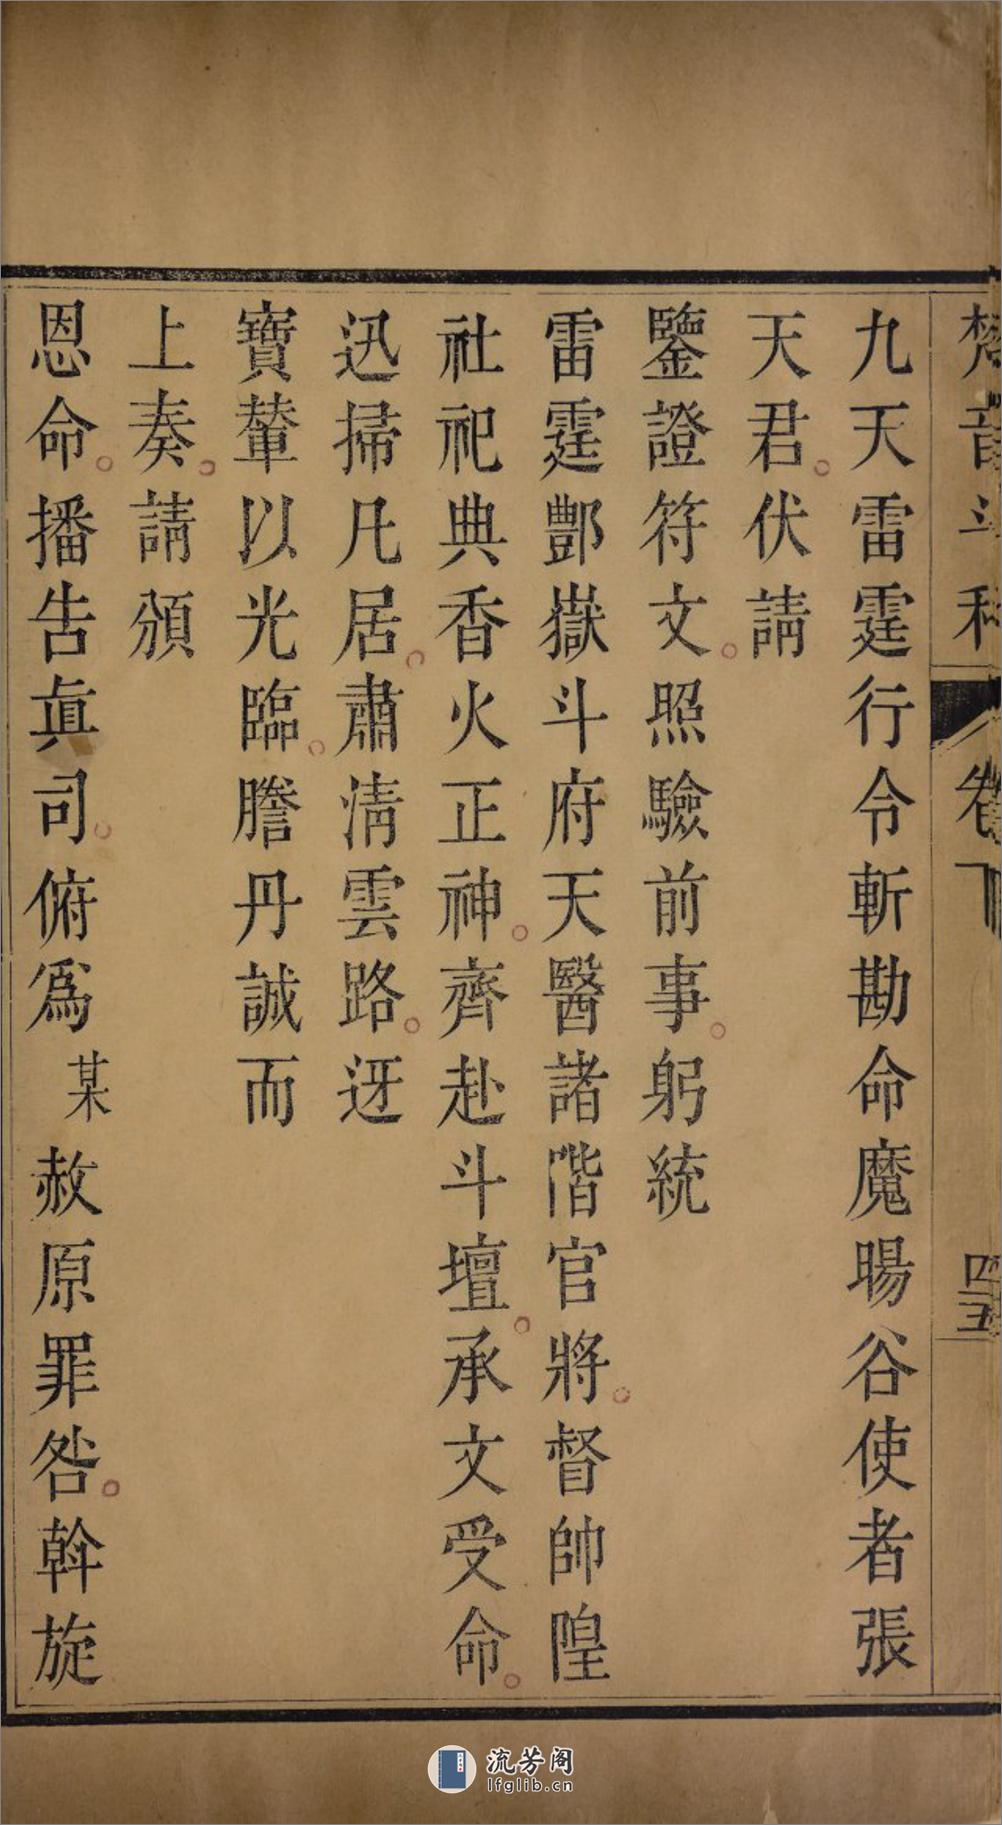 梵音斗科 卷下 四五
九天雷霆行令斬勘命魔暘谷使者張
天君。伏請
鑒證符文。照驗前事。躬統
雷霆酆嶽斗府天醫諸階官將。督帥隍
社祀典香火正神。齊赴斗壇。承文受命。
迅掃凡居。肅淸雲路。迓
寶輦以光臨。謄丹誠而
上奏。請頒
恩命。播告眞司。俯爲某赦原罪咎。斡旋
流芳阁
lfglib.cn